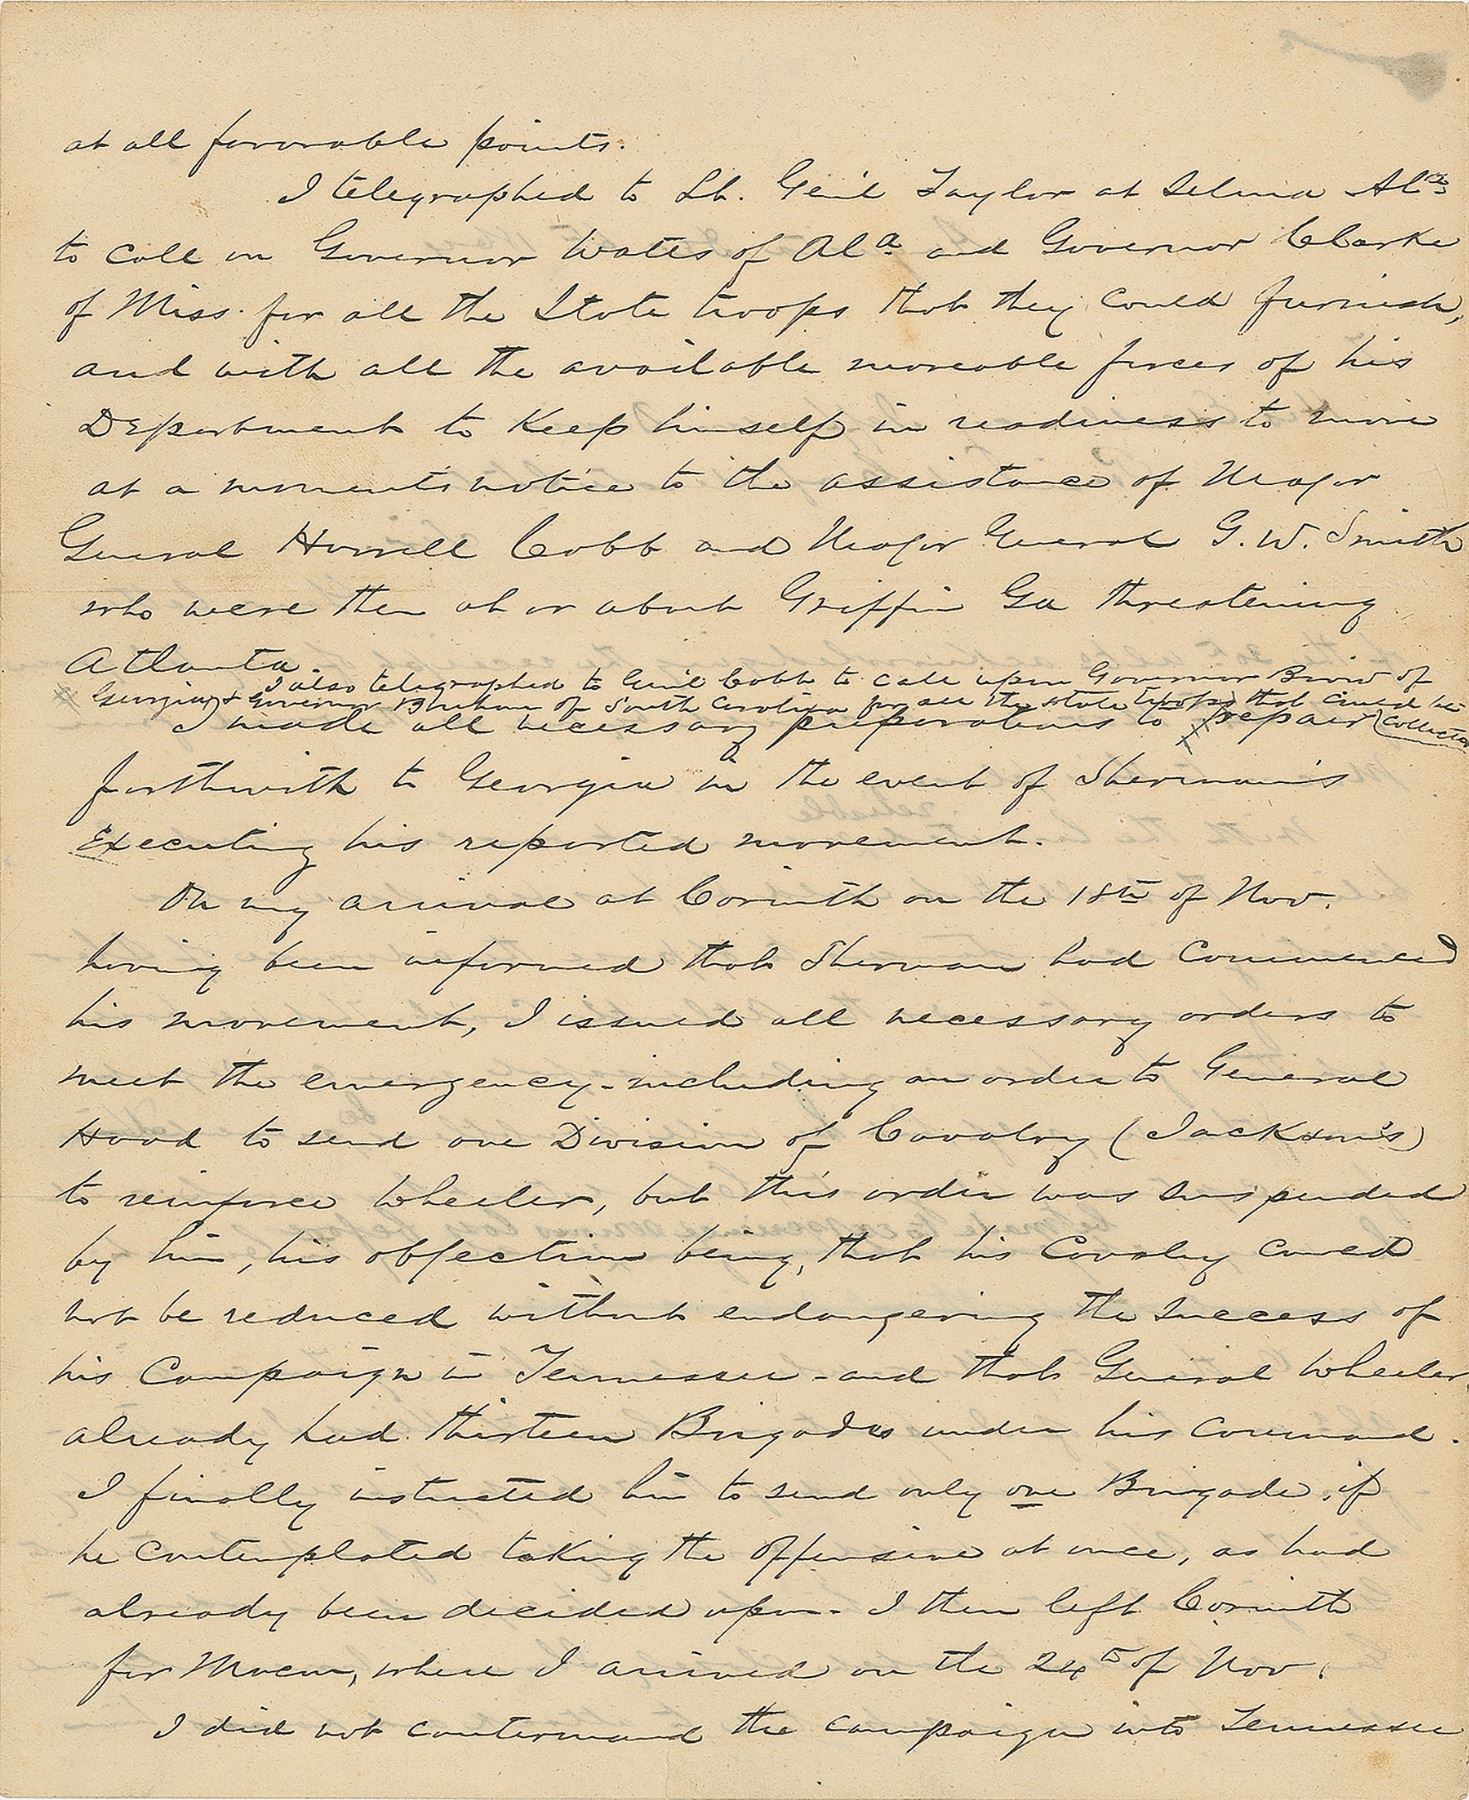 at all favorable points.
I telegraphed to Lt. Gen'l Taylor at Selma Ala
to call on Governor Watts of Ala. and Governor Clarke
of Miss. for all the State troops that they could furnish,
and with all the available moveable forces of his
Department to Keep himself in readiness to move
at a moments notice to the assistance of Major
General Howell Cobb and Major General G. W. Smith
who were then at or about Griffin Ga threatening
Atlanta.
I also telegraphed to Gen'l Cobb to call upon Governor Brown of
Georgia & Governor Bonham of South Carolina for all the state troops that could be
collected
I made all necessary preparations to repair
forthwith to Georgia in the event of Sherman's
Executing his reported movement.
On my arrival at Corinth on the 18th of Nov.
having been informed that Sherman had commenced
his movement, I issued all necessary orders to
meet the emergency - including an order to General
Hood to send one Division of Cavalry (Jackson's)
to reinforce Wheeler, but this order was suspended
by him, his objection being, that his Cavalry could
not be reduced without endangering the success of
his Campaign in Tennessee - and that General Wheeler
already had thirteen Brigades under his command.
I finally instructed him to send only one Brigade, if
he contemplated taking the offensive at once, as had
already been decided upon - I then left Corinth
for Macon, where I arrived on the 24th of Nov.
I did not countermand the campaign into Tennessee